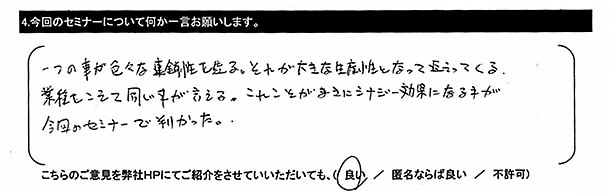 4.今回のセミナーについて何か一言お願いします。
一つの事が色々な連鎖性を造る。それが大きな生産性となって返ってくる。
業種をこえて同じ事が言える。これことがまさにシナジー効果になる事が
今回のセミナーで判かった。
こちらのご意見を弊社HPにてご紹介をさせていいただいても、( 良い / 匿名ならば良い / 不許可)